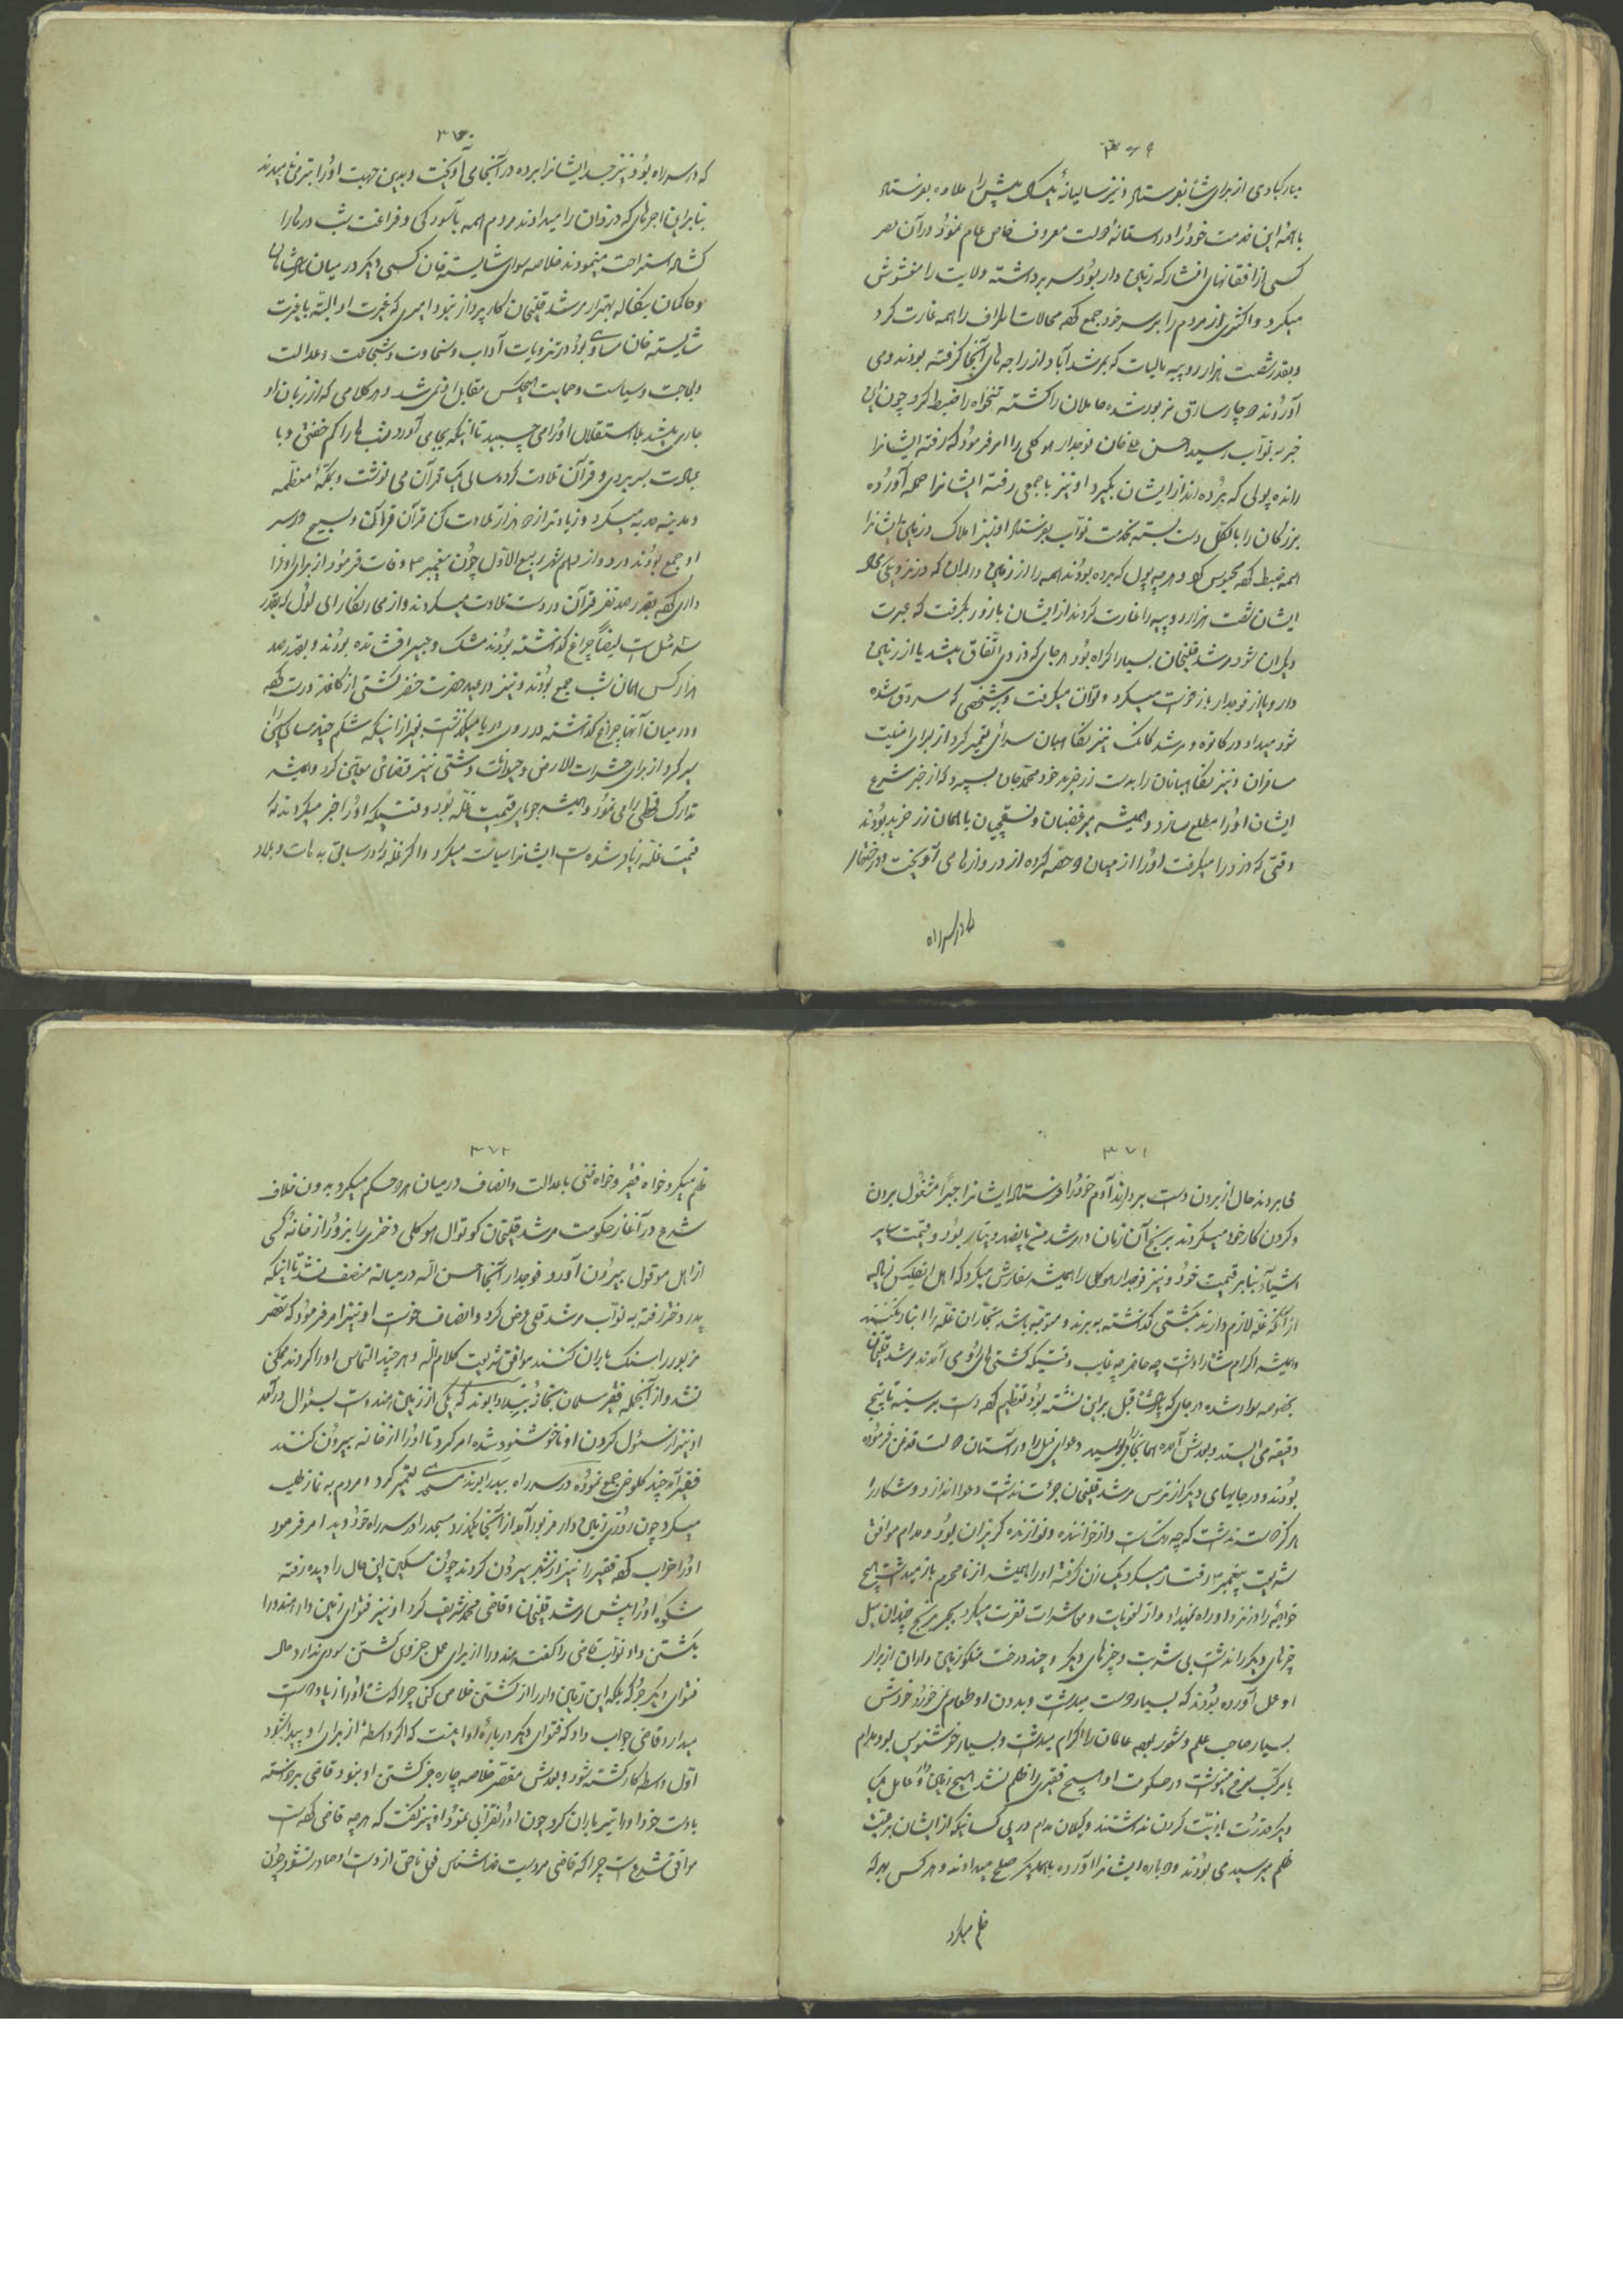 ۳۶۹
مبارکبادی از برای شاه بفرستاد و نیز سالیانهٔ یک پیش را علاوه بفرستاد
با همهٔ این خدمت خود را در آستانهٔ دولت معروف خاص و عام نمود در آن عصر
کسی از افغانهای افشار که زمین دار بود سر برداشته ولایت را مغشوش
میکرد و اکثری از مردم را بر سر خود جمع کرده محالات اطراف را همه غارت کرد
و بقدر شصت هزار روپیه مالیات که بمرشد آباد از راجه های آنجا گرفته بودند می
آوردند دوچار سارق مزبور شده حاملان را کشته تنخواه را ضبط کرد چون این
خبر به نواب رسید احسن علیخان فوجدار هوگلی را امر فرمود که رفته ایشانرا
رانده پولی که برده اند از ایشان بگیرد او نیز با جمعی رفته ایشانرا حمله آورده
بزرگان را بالکل دست بسته بخدمت نواب بفرستاد او نیز املاک و زمین ایشانرا
همه ضبط کرده محبوس کرد و هر چه پول که برده بودند همه را از زمین داران که در نزدیکی
ایشان شصت هزار روپیه را غارت کردند از ایشان بازور بگرفت که عبرت
دیگران شود مرشد قلیخان بسیار اکراه بود هر جای که دزدی اتفاق میشد یا از زمین
دار و یا از فوجدار بازخواست میکرد و تاوان میگرفت و بشخصی که سروق شده
بود میداد در کاتوه و مرشد گنج نیز نگاهبان سرای تعمیر کرد از برای امنیت
مسافران و نیز نگاهبانان را بدست زرخرید خود محمد جان بسپرد که از خیر و شرع
ایشان او را مطلع سازد و همیشه میرغضبان و نسقچیان با همان زرخرید بودند
وقتی که دزد را میگرفت او را از میان دو حصه کرده از دروازها می آویخت و درختها
که در سر راه
۳۷۰
که در سر راه بود نیز جسد ایشانرا برده در آنجا می آویخت و بدین جهت او را می نامیدند
بنابراین اجرهای که دزدان را میدادند مردم همه بآسودگی و فراغت شب درها را
گشاده استراحت مینمودند خلاصه سوای شایسته خان کسی دیگر در میان
و حاکمان بنگاله بهتر از مرشد قلیخان کارپرداز نبود امیری که غیرت او البته با غیرت
شایسته خان مساوی بود در ترویجات آداب و سخاوت و شجاعت و عدالت
و سیاست و حمایت هیچکس مقابل او نمی شد و هر کلامی که از زبان او
جاری میشد با استقلال او را می چسپید تا اینکه بجا می آورد شبها را کم خفتی و با
عبادت بسر بردی و قرآن تلاوت کرده سالی یک قرآن می نوشت و بمکهٔ معظمه
و مدینه هدیه میکرد و زیاده تر از دو هزار تلاوت کن قرآن و تسبیح در سر
او جمع بودند و در دوازدهم شهر ربیع الاول چون پیغمبر وفات فرمود از برای او عزا
داری کرده بقدر صد نفر قرآن در دست تلاوت میکردند و از
ایضاً چراغ گذاشته بودند مشک و عبیر افشانده بودند و بقدر صد
هزار کس همان شب جمع بودند و نیز در عید حضرت خضر کشتی از کاغذ درست کرده
و در میان آنها چراغ گذاشته در روی دریا میگذاشت بغیر از اینکه شکم چندی مساکین را
سیر کرد از برای حشرات الارض و حیوانات دشتی نیز معین کرد و همیشه
تدارک قحطی را می نمود و همیشه جویای قیمت غله بود وقتیکه او را خبر میکردند که
قیمت غله زیاد شده است ایشانرا سیاست میکرد و اگر غله را در سابق به دهات و بلاد
۳۷۱
می بردند حال از بردن دست بردارند آدم خود را فرستاده ایشانرا جبراً مشغول بردن
و کردن کار خود میکردند برنج آن زمان در مرشد بود و قیمت سایر
اشیاء بنابر قیمت خود و نیز فوجدار هوگلی را همیشه سفارش میکرد که اهل انگلیس زیاده
از آنکه غله لازم دارند بکشتی گذاشته نبرند و متوجه باشد تجاران غله را انبار نکنند
و همیشه اکرام شاه را داشت چه حاضر چه غایب وقتیکه کشتی های نو می آمدند مرشد قلیخان
بخصوصه سوار شده در جای که قبل بر این نشسته بود تعظیم کرده دست بر سینه تا پنج
دقیقه می ایستاد و بعدش آمده همانجا را میبوسید و دعوای فیل را در آستان دولت قدغن فرموده
بودند و در جاهای دیگر از ترس مرشد قلیخان جرئت نداشت
هرگز دوست نداشت که چه رقاصت و از خواننده و نوازنده گریزان بود و مدام موافق
شریعت پیغمبر رفتار میکرد یک زن گرفته او را همیشه از نامحرم باز میداشت هیچ
خواجهٔ را در نزد او راه نمیداد و از لغویات و معاشرات نفرت میکرد بجز برنج چندان میل
چیزهای دیگر را نداشت بی شربت و چیزهای دیگر و چند درخت زمین داران از برای
او عمل آورده بودند که بسیار دوست میداشت و بدون او طعام نمی خورد خودش
بسیار صاحب علم و شعور بوده عالمان را اکرام میداشت و بسیار خوشنویس بود مدام
با مرکب سرخ مینوشت در حکومت او هیچ فقیری را ظلم نشد هیچ زمین دار و عامل
دیگر قدرت اذیت کردن نداشتند وکیلان مدام در پی کسانیکه از ایشان بر رعیت
ظلم میرسید می بودند و دوباره ایشانرا آورده با همدیگر صلح میدادند و هر کس بهر که
ظلم میکرد
۳۷۲
ظلم میکرد خواه فقیر و خواه غنی با عدالت و انصاف در میان هر دو حکم میکرد بدون خلاف
شرع در آغاز حکومت مرشد قلیخان کوتوال هوگلی دختری را بزور از خانهٔ کسی
از اهل موقول بیرون آورد و فوجدار آنجا احسن الله در میانه منصف نشد تا اینکه
پدر دختر رفته به نواب مرشد قلی عرض کرد و انصاف خواست او نیز امر فرمود که مقصر
مزبور را سنگ باران کنند موافق شریعت کلام الله و هر چند التماس او را کردند ممکن
نشد و از آنجمله فقیر مسلمان که یکی از زمین هندوست بسئوال درآمد
او نیز از سئوال کردن او ناخوشنود شده امر کرد تا او را از خانه بیرون کنند
فقیر آمد چند کلوخی جمع نموده در سر راه مسجدی تعمیر کرد و مردم به نماز طلب
میکرد چون روزی زمین دار مزبور آمد از آنجا بگذرد مسجد را در سر راه خود دید امر فرمود
او را خراب کرده فقیر را نیز از شهر بیرون کردند چون مسکین این حال را دیده رفته
شکوه او را پیش مرشد قلیخان و قاضی محمد شریف کرد او نیز فتوای زمین دار هندو را
بکشتن داد نواب قاضی را گفت هندو را از برای عمل جزوی کشتن سودی ندارد حال
فتوای دیگر جو که بلکه این زمین دار را از کشتن خلاص کنی چرا که شاه او را زیاد دوست
میدارد قاضی جواب داد که فتوای دیگر درباره او اینست که اگر واسطهٔ از برای او پیدا شود
اول واسطه کار کشته شود و بعدش مقصر خلاصه چاره جز کشتن او نبود قاضی برخواسته
با دست خود او را تیر باران کرد چون او را قربانی نمود او نیز گفت که هر چه قاضی کرده است
موافق شرع است چرا که قاضی مردیست خداشناس فعل ناحق از دست او صادر نشود چون